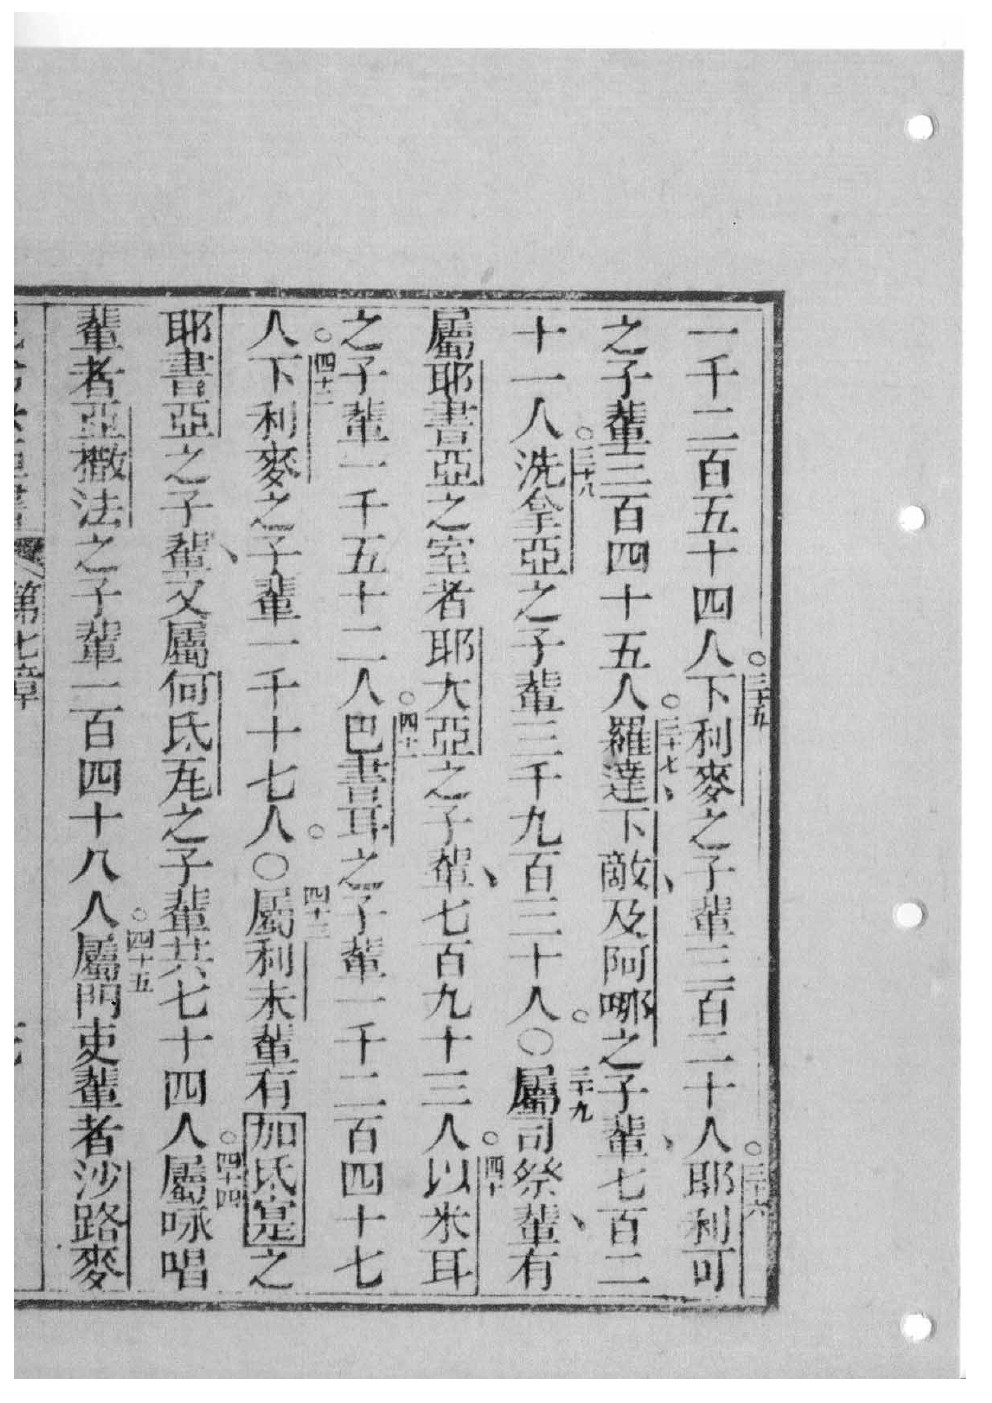 一千二百五十四人○三十五下利麥之子輩三百二十人○三十六耶利可
之子輩三百四十五人○三十七羅達、下敵、及阿哪之子輩、七百二
十一人○三十八洗拿亞之子輩三千九百三十人○○三十九屬司祭輩、有
屬耶書亞之室者耶大亞之子輩、七百九十三人○四十以米耳
之子輩一千五十二人○四十一巴書耳之子輩一千二百四十七
人○四十二下利麥之子輩一千十七人○○四十三屬利未輩有加氐寔之
耶書亞之子輩、又屬何氐孖之子輩共七十四人○四十四屬咏唱
輩者亞撒法之子輩一百四十八人○四十五屬門吏輩者沙路麥
第七章